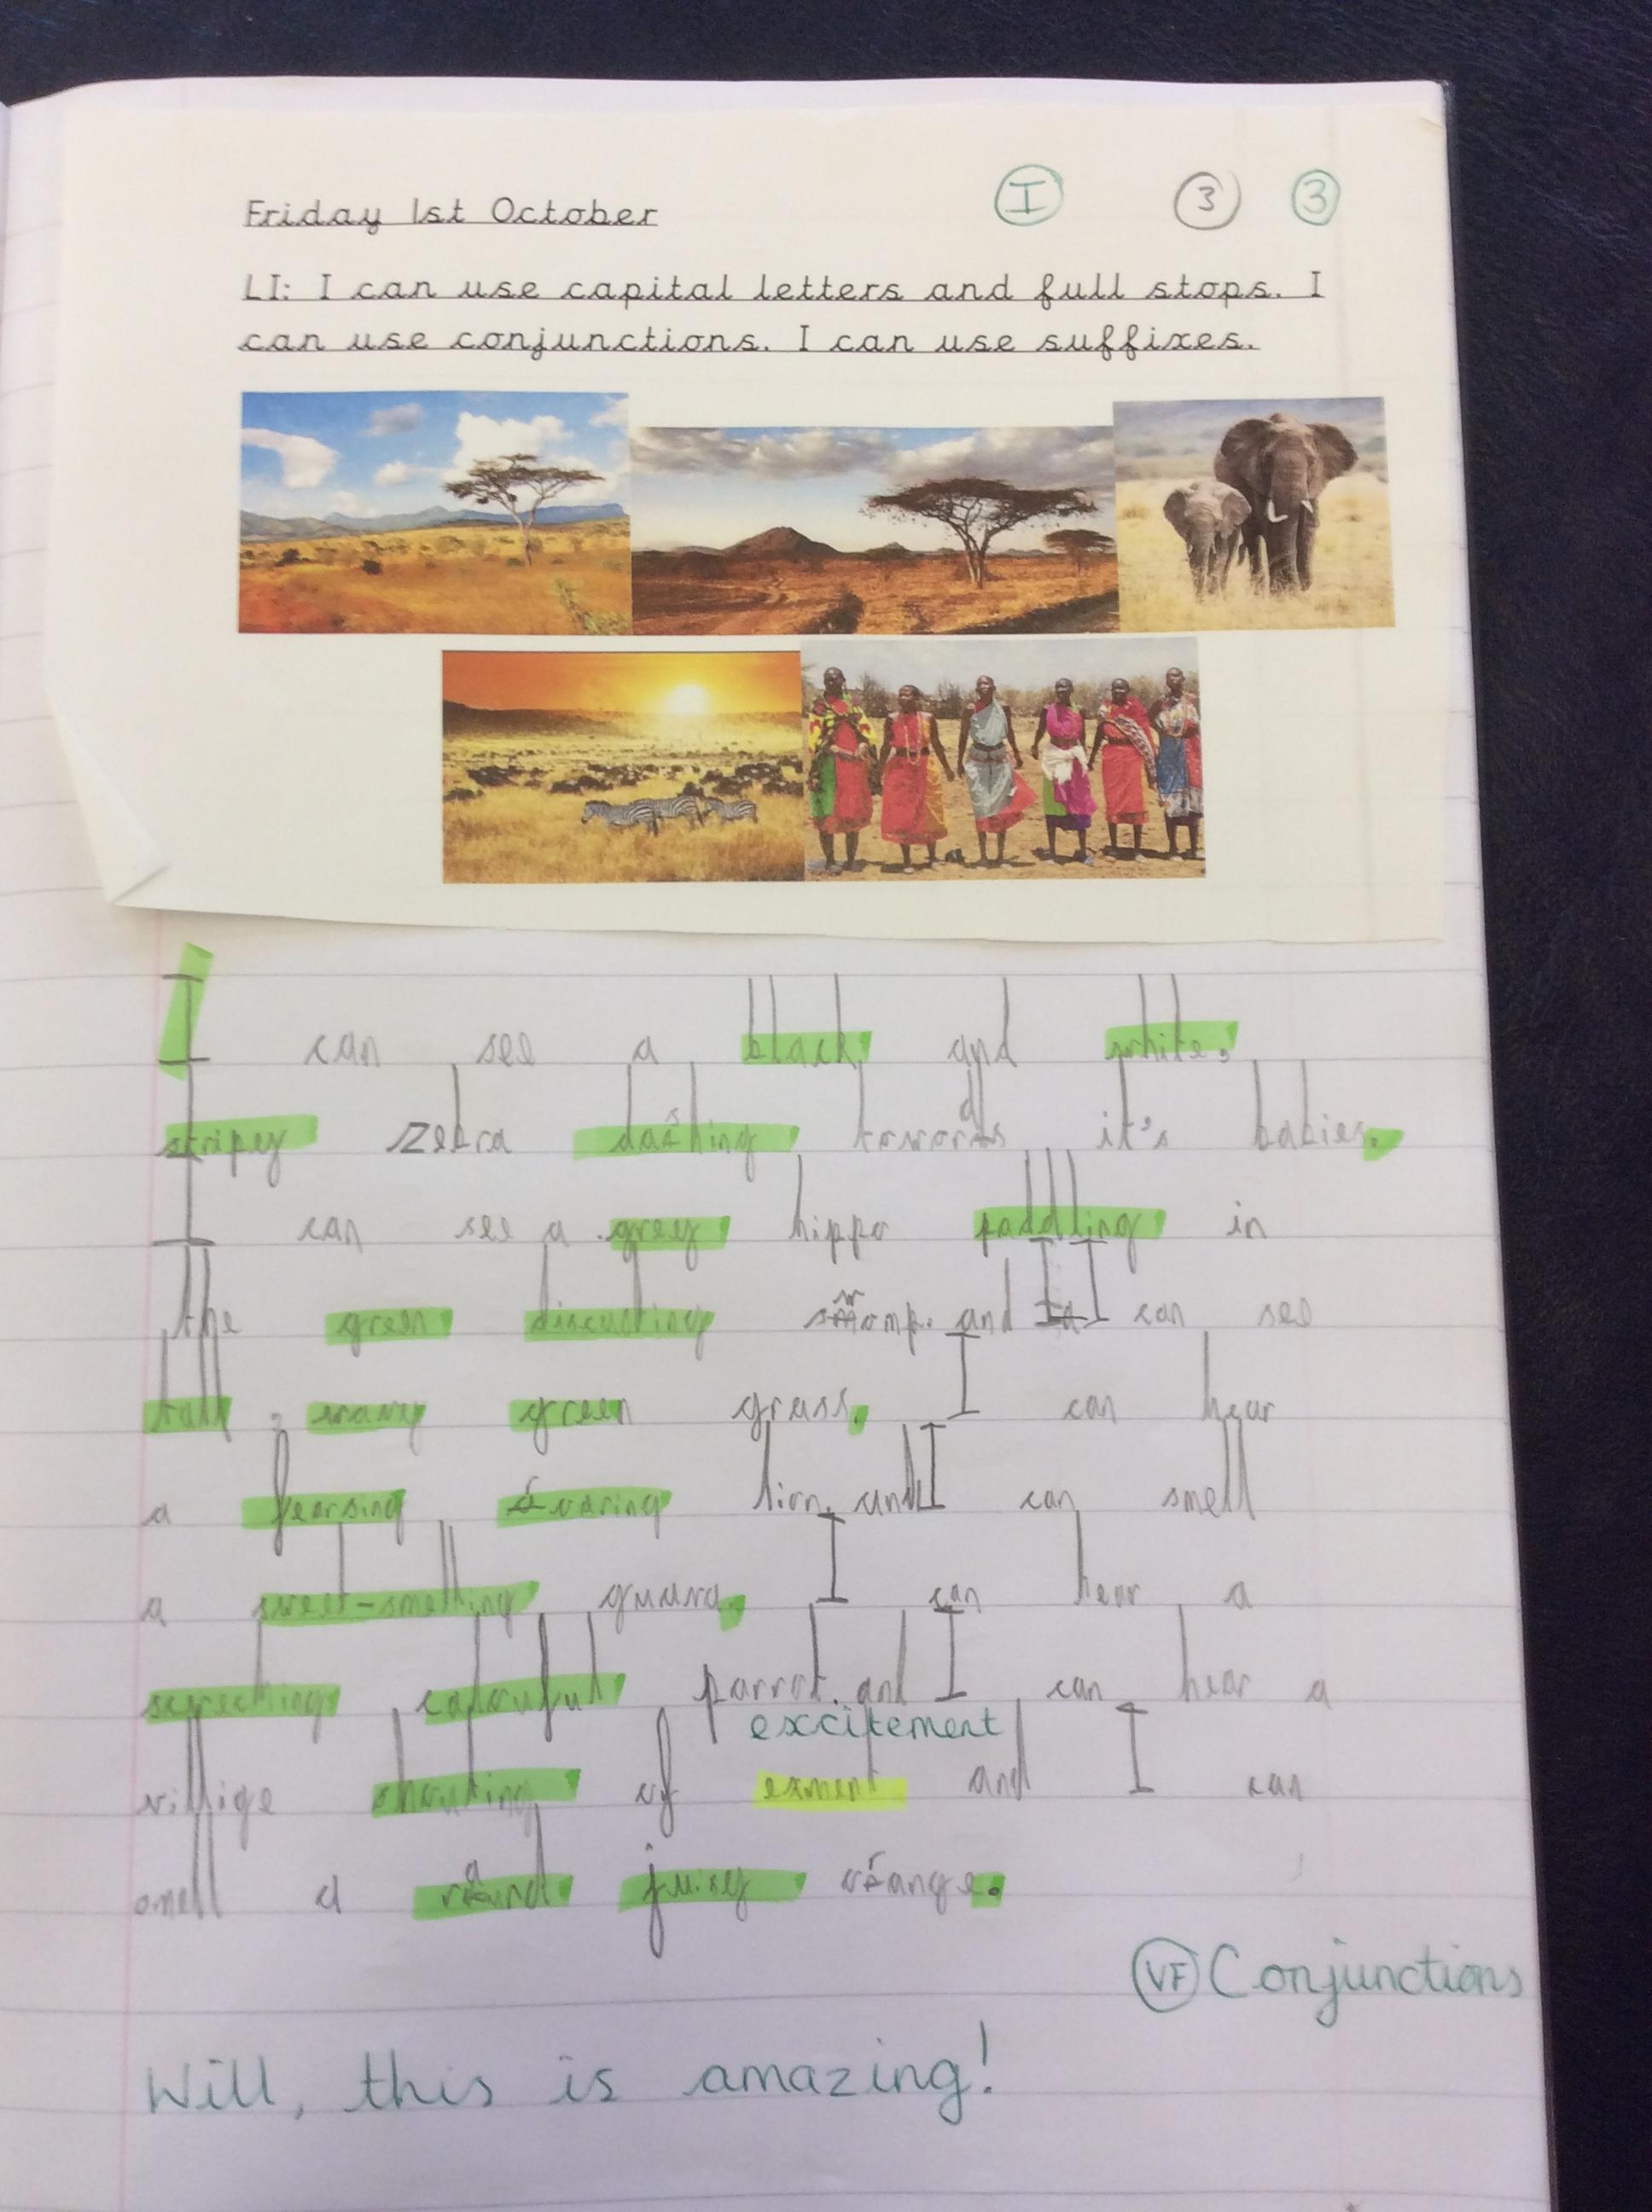 Friday 1st October I 3 3
LI: I can use capital letters and full stops. I
can use conjunctions. I can use suffixes.
I can see a black, and white,
stripey zebra dashing towards it's babies.
I can see a grey hippo paddling in
the green discusting swamp. and I can see
tall, wavy green grass. I can hear
a fearsing roaring lion. and I can smell
a sweet-smelling guuava. I can hear a
screeching calouful parrot. and I can hear a
excitement
villige shouting of exment and I can
smell a round juisy orange.
VF Conjunctions
Will, this is amazing!